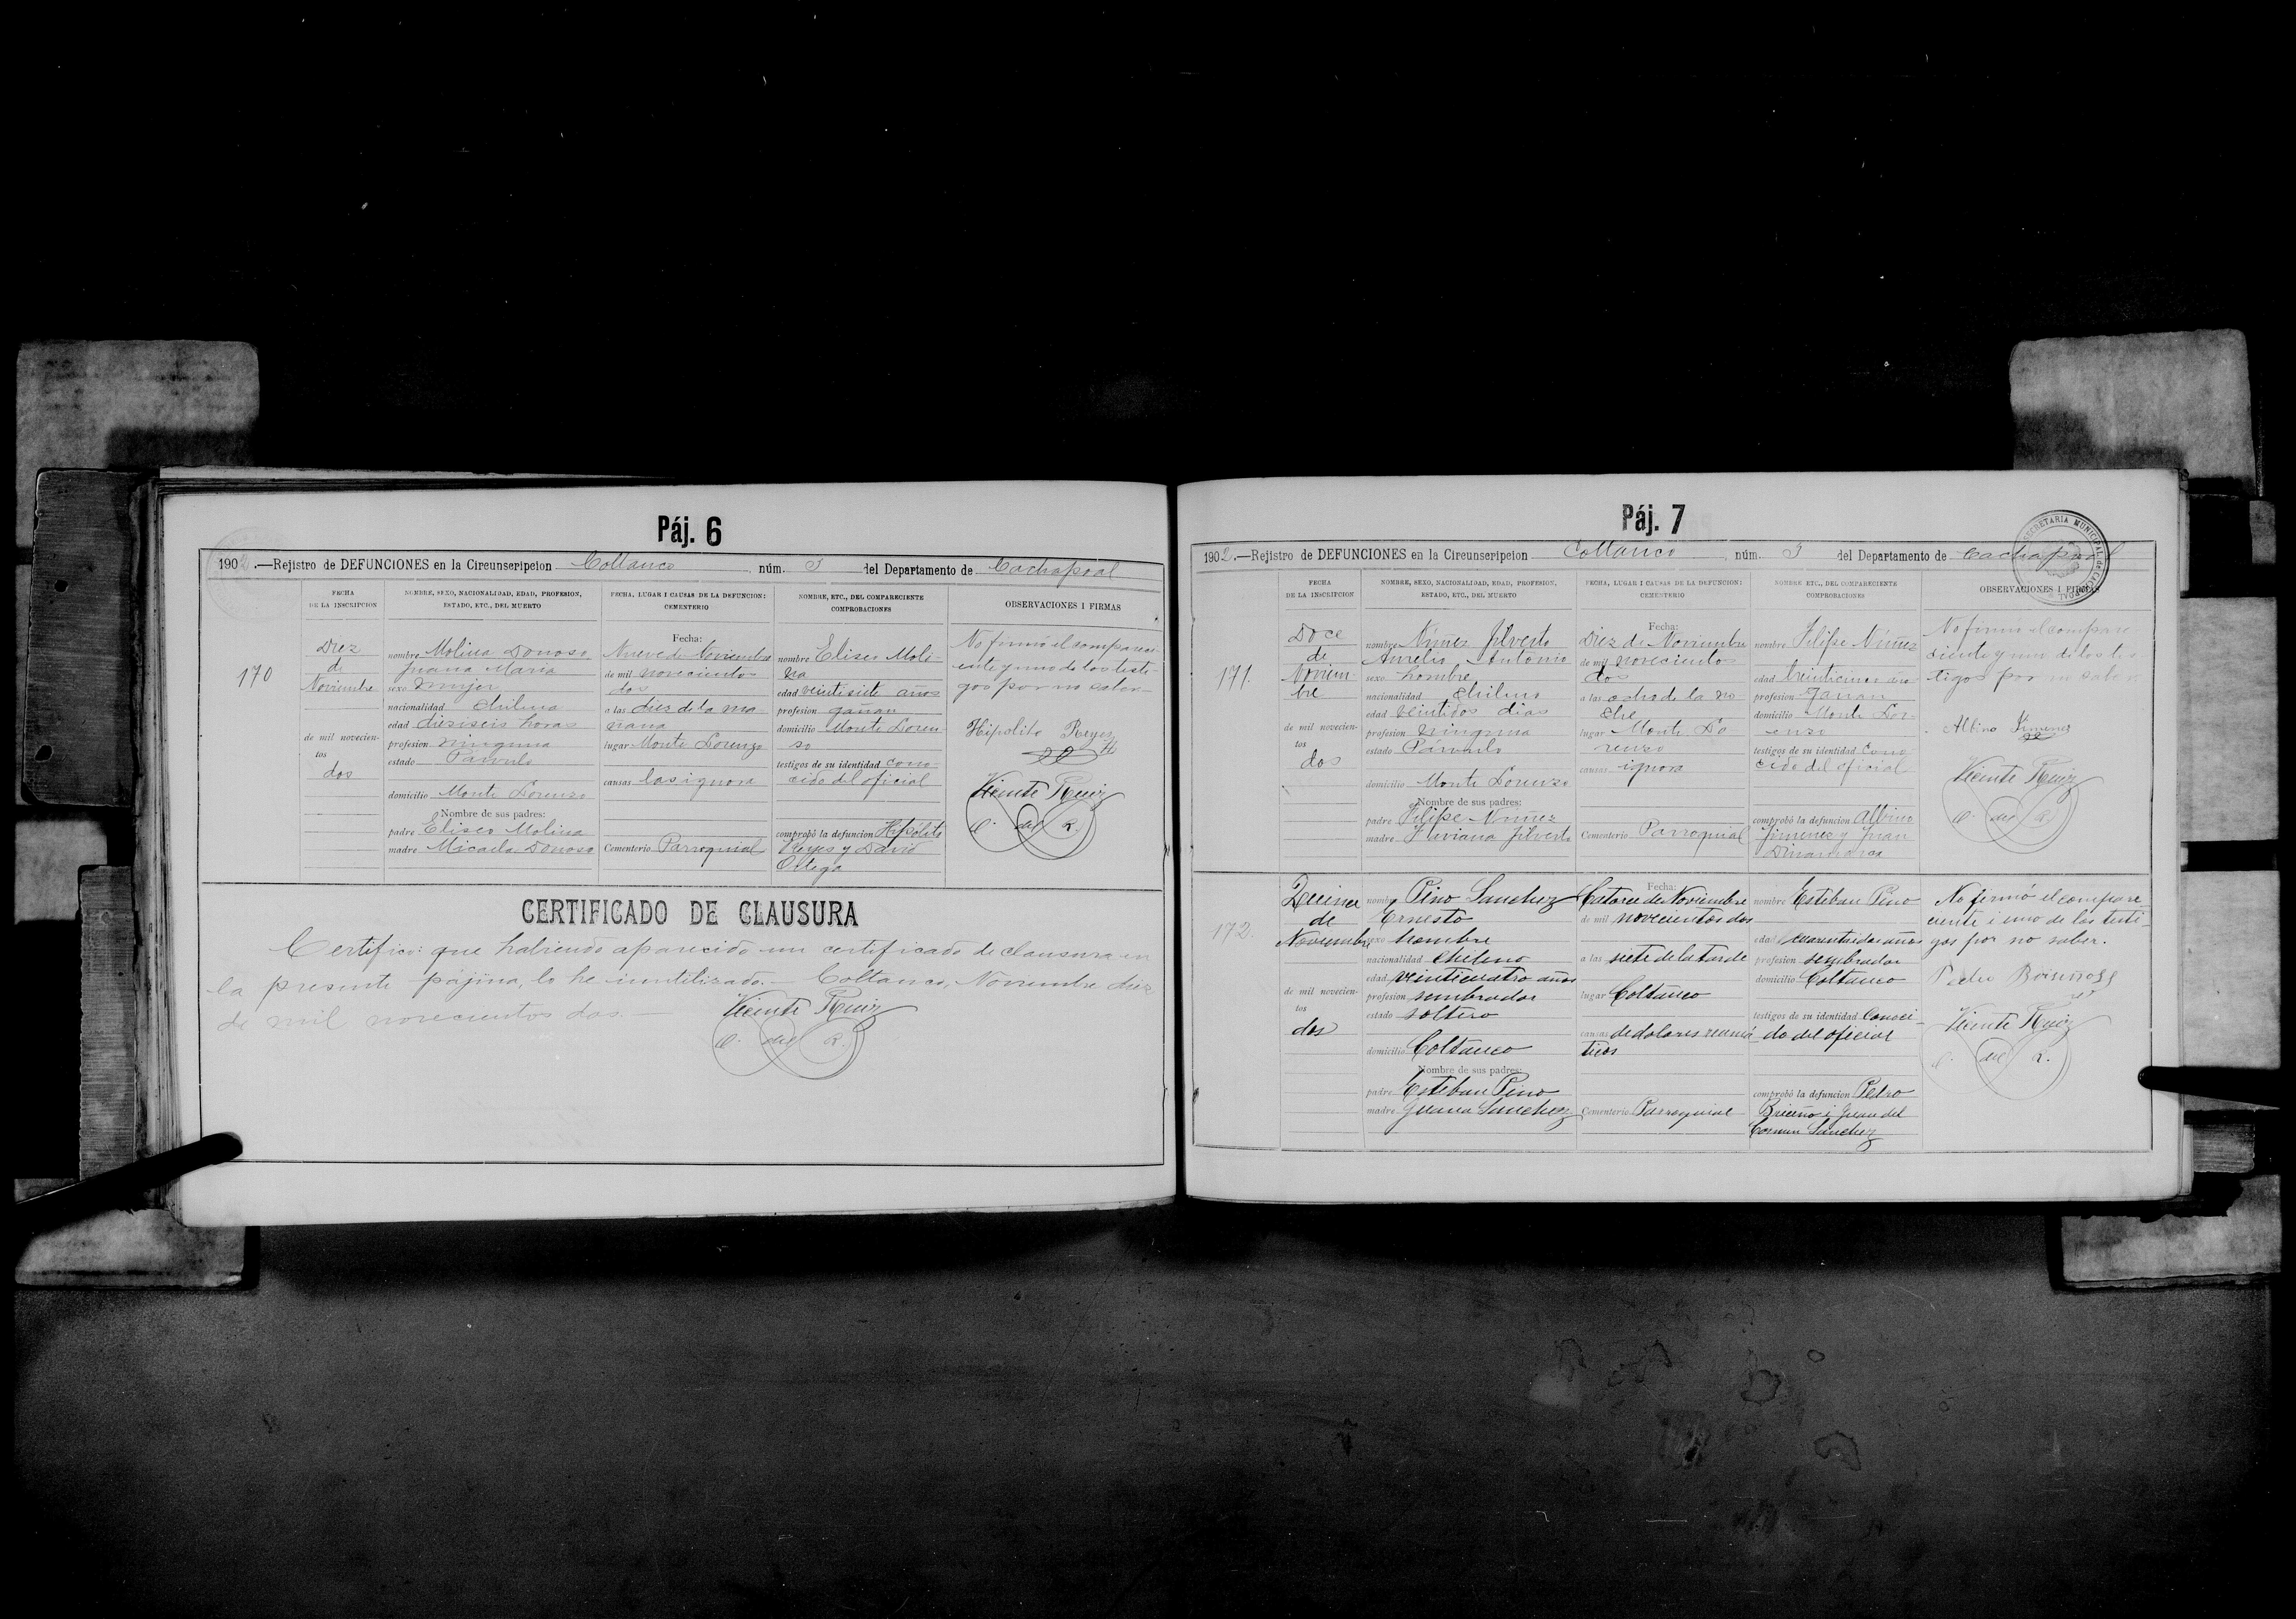 Páj. 6
1902.—Rejistro de DEFUNCIONES en la Circunscripcion Coltauco núm. 3 del Departamento de Cachapoal
FECHA
DE LA INSCRIPCION
NOMBRE, SEXO, NACIONALIDAD, EDAD, PROFESION,
ESTADO, ETC., DEL MUERTO
FECHA, LUGAR I CAUSAS DE LA DEFUNCION:
CEMENTERIO
NOMBRE, ETC., DEL COMPARECIENTE
COMPROBACIONES
OBSERVACIONES I FIRMAS
170
Diez
de
Noviembre
de mil novecien-
tos
dos
nombre Molina Donoso
Juana Maria
sexo mujer
nacionalidad chilena
edad dieziseis horas
profesion ninguna
estado Párvulo
domicilio Monte Lorenzo
Nombre de sus padres:
padre Eliseo Molina
madre Micaela Donoso
Fecha:
Nueve de Noviembre
de mil novecientos
dos
a las diez de la ma
ñana
lugar Monte Lorenzo
causas las ignora
Cementerio Parroquial
nombre Eliseo Moli-
na
edad veintisiete años
profesion gañan
domicilio Monte Loren
so
testigos de su identidad cono-
cido del oficial
comprobó la defuncion Hipólito
Reyes y David
Ortega
No firmó el compareci-
ente y uno de los testi-
gos por no saber—
Hipolito Reyes
Vicente Ruiz
O. del R.
CERTIFICADO DE CLAUSURA
Certifico: que habiendo aparecido un certificado de clausura en
la presente pájina, lo he inutilizado.— Coltauco, Noviembre diez
de mil novecientos dos.—
Vicente Ruiz
O. del R.
Páj. 7
1902.—Rejistro de DEFUNCIONES en la Circunscripcion Coltauco, núm. 3 del Departamento de Cachapoal
SECRETARIA MUNICIPAL DE CACHAPOAL
FECHA
DE LA INSCRIPCION
NOMBRE, SEXO, NACIONALIDAD, EDAD, PROFESION,
ESTADO, ETC., DEL MUERTO
FECHA, LUGAR I CAUSAS DE LA DEFUNCION:
CEMENTERIO
NOMBRE ETC., DEL COMPARECIENTE
COMPROBACIONES
OBSERVACIONES I FIRMAS
171.
Doce
de
Noviem-
bre
de mil novecien-
tos
dos
nombre Nuñez Jilverto
Aurelio Antonio
sexo hombre
nacionalidad chileno
edad veintidos dias
profesion ninguna
estado Párvulo
domicilio Monte Lorenzo
Nombre de sus padres:
padre Felipe Núñez
madre Flaviana Jilverto
Fecha:
Diez de Noviembre
de mil novecientos
dos
a las ocho de la no
che
lugar Monte Lo
renzo
causas ignora
Cementerio Parroquial
nombre Felipe Núñez
edad veinticinco año
profesion Gañan
domicilio Monte Lor-
enzo
testigos de su identidad cono
cido del oficial
comprobó la defuncion Albino
Jimenes y Juan
Dinamarca
No firmó el compare
ciente y uno de los tes-
tigos por no saber.
Albino Jimenes
Vicente Ruiz
O. del R.
172.
Quince
de
Noviembre
de mil novecien-
tos
dos
nombre Pino Sanchez
Ernesto
sexo hombre
nacionalidad chileno
edad veinticuatro años
profesion sembrador
estado soltero
domicilio Coltauco
Nombre de sus padres:
padre Esteban Pino
madre Juana Sanchez
Fecha:
Catorce de Noviembre
de mil novecientos dos
a las siete de la tarde
lugar Coltauco
causas de dolores reumá
ticos
Cementerio Parroquial
nombre Esteban Pino
edad cuarentidos años
profesion sembrador
domicilio Coltauco
testigos de su identidad Conoci-
do del oficial
comprobó la defuncion Pedro
Briceño i Juan del
Carmen Sanchez
No firmó el compare-
ciente i uno de los testi-
gos por no saber.
Pedro
Vicente Ruiz
O. del R.